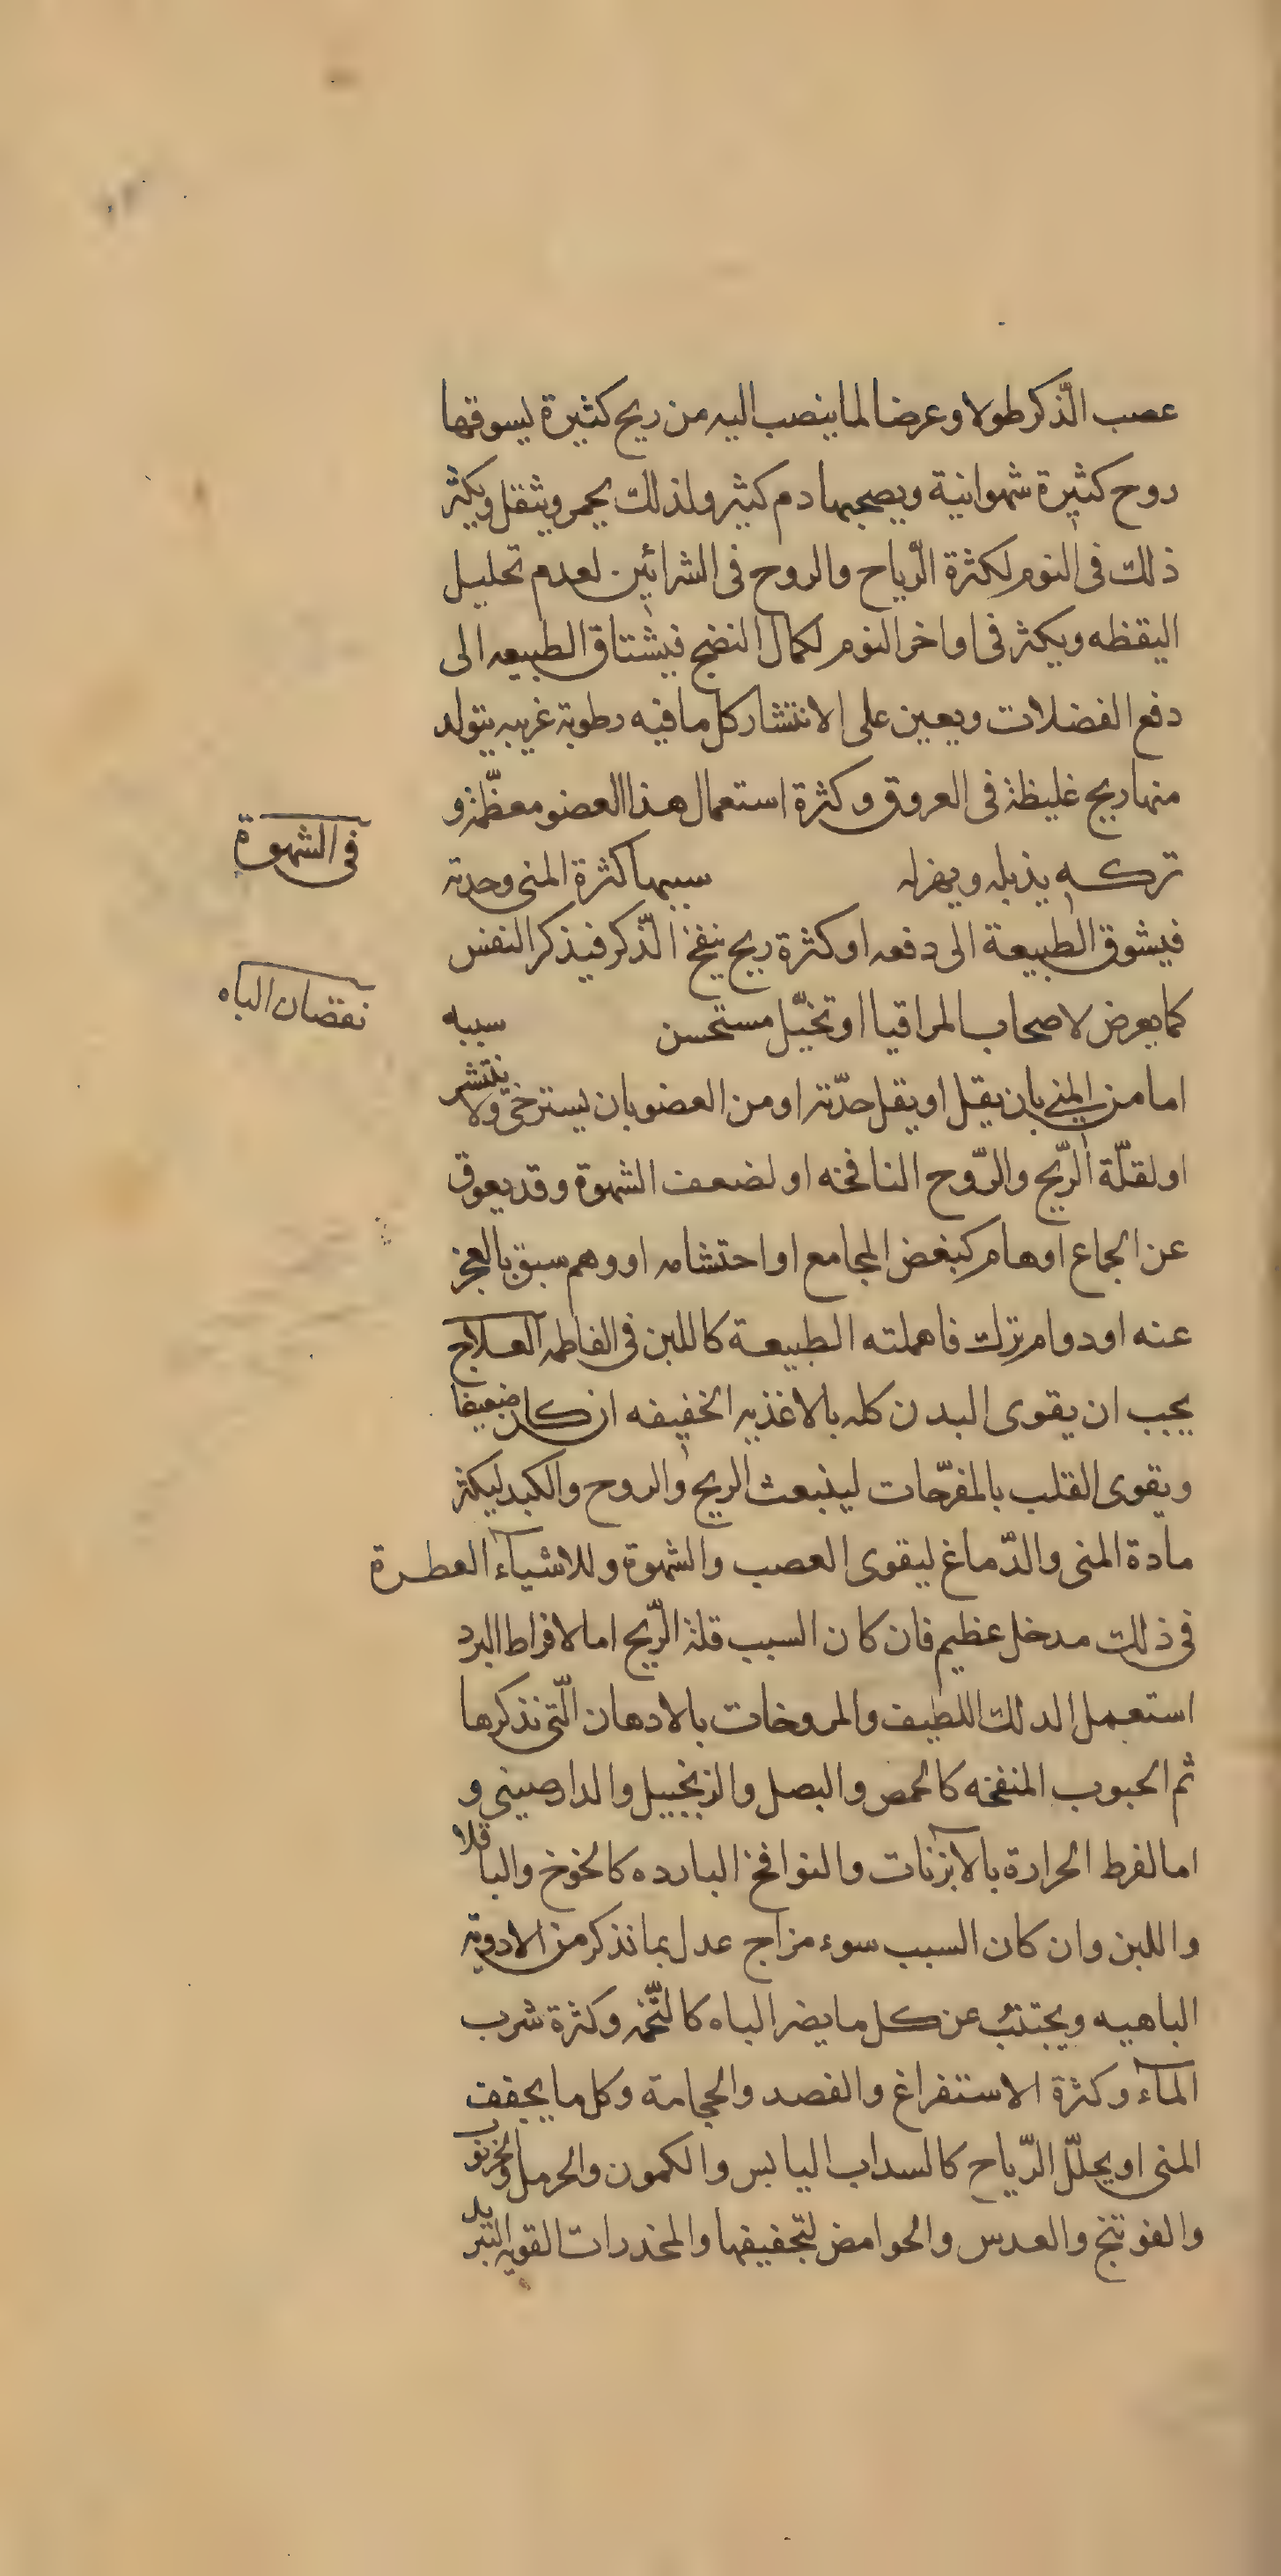 عصب الذّكر طولا وعرضا لما ينصب اليه من ريح كثيرة يسوقها
روح كثيرة شهوانية ويصحبها دم كثير ولذلك يحمر ويثقل ويكثر
ذلك فى النوم لكثرة الرّياح والروح فى الشرائين لعدم تحليل
اليقظه ويكثر فى اواخر النوم لكمال النضج فيشتاق الطبيعه الى
دفع الفضلات ويعين على الانتشار كل ما فيه رطوبة غريبه يتولد
منها ريح غليظة فى العروق وكثرة استعمال هذا العضو معظّمة و
تركه يذبله ويهزله سببها كثرة المنى وحدته
فى الشهوة
فيشوق الطبيعة الى دفعه او كثرة ريح ينفخ الذّكر فيذكر النفس
كما يعرض لاصحاب المراقيا او تخيّل مستحسن سببه
نقصان الباه
اما من المنى بان يقل او يقل حدّته او من العضو بان يسترخى ولا ينتشر
او لقلّة الرّيح والرّوح النافخه او لضعف الشهوة وقد يعوق
عن الجماع اوهام كبغض المجامع او احتشامه او وهم سبق بالعجز
عنه او دوام ترك فاهملته الطبيعة كاللبن فى الفاطمه العلاج
يجب ان يقوى البدن كله بالاغذيه الخفيفه ان كان ضعيفا
ويقوى القلب بالمفرّحات لينبعث الريح والروح والكبد ليكثر
مادة المنى والدّماغ ليقوى العصب والشهوة وللاشيآء العطرة
فى ذلك مدخل عظيم فان كان السبب قلة الرّيح اما لافراط البرد
استعمل الدلك اللطيف والمروخات بالادهان الّتى نذكرها
ثم الحبوب المنفخه كالحمص والبصل والزنجبيل والدارصينى و
اما لفرط الحرارة بالآبزنات والنوافخ البارده كالخوخ والباقلا
واللبن وان كان السبب سوء مزاج عدل بما نذكر من الادوية
الباهيه ويجتنب عن كل ما يضر الباه كالتّخمه وكثرة شرب
المآء وكثرة الاستفراغ والفصد والحجامة وكل ما يجفف
المنى او يحلّل الرّياح كالسداب اليابس والكمون والحرمل والخرنوب
والفوتنج والعدس والحوامض لتجفيفها والمخدرات القويه التبريد